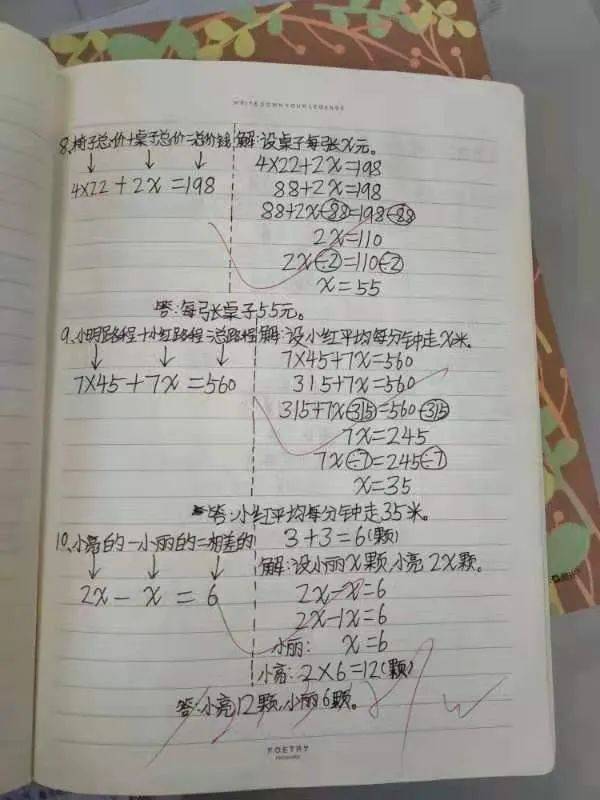 WRITE DOWN YOUR LEGENDS
8、椅子总价+桌子总价=总价钱
4×22+2x=198
解:设桌子每张x元。
4×22+2x=198
88+2x=198
88+2x-88=198-88
2x=110
2x÷2=110÷2
x=55
答:每张桌子55元。
9、小明路程+小红路程=总路程
7×45+7x=560
解:设小红平均每分钟走x米。
7×45+7x=560
315+7x=560
315+7x-315=560-315
7x=245
7x÷7=245÷7
x=35
答:小红平均每分钟走35米。
10、小亮的-小丽的=相差的
2x-x=6
3+3=6(颗)
解:设小丽x颗,小亮2x颗。
2x-x=6
2x-1x=6
小丽: x=6
小亮:2×6=12(颗)
答:小亮12颗,小丽6颗。
POETRY